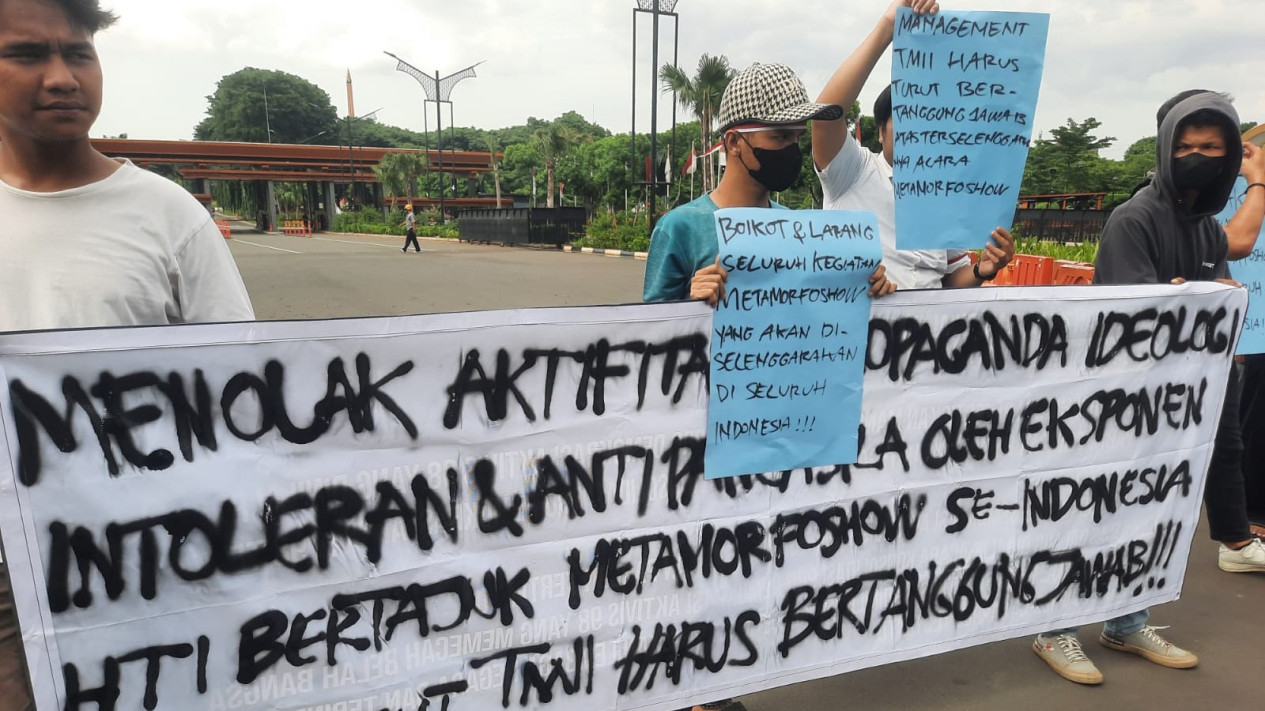 MANAGEMENT
TMII HARUS
TURUT BER-
TANGGUNG JAWAB
ATAS TERSELENGGARA
NYA ACARA
METAMORFOSHOW
BOIKOT & LARANG
SELURUH KEGIATAN
METAMORFOSHOW
YANG AKAN DI-
SELENGGARAKAN
DI SELURUH
INDONESIA!!!
MENOLAK AKTIFITA OPAGANDA IDEOLOGI
INTOLERAN & ANTI PANCASILA OLEH EKSPONEN
HTI BERTAJUK METAMORFOSHOW SE-INDONESIA
TMII HARUS BERTANGGUNG JAWAB!!!